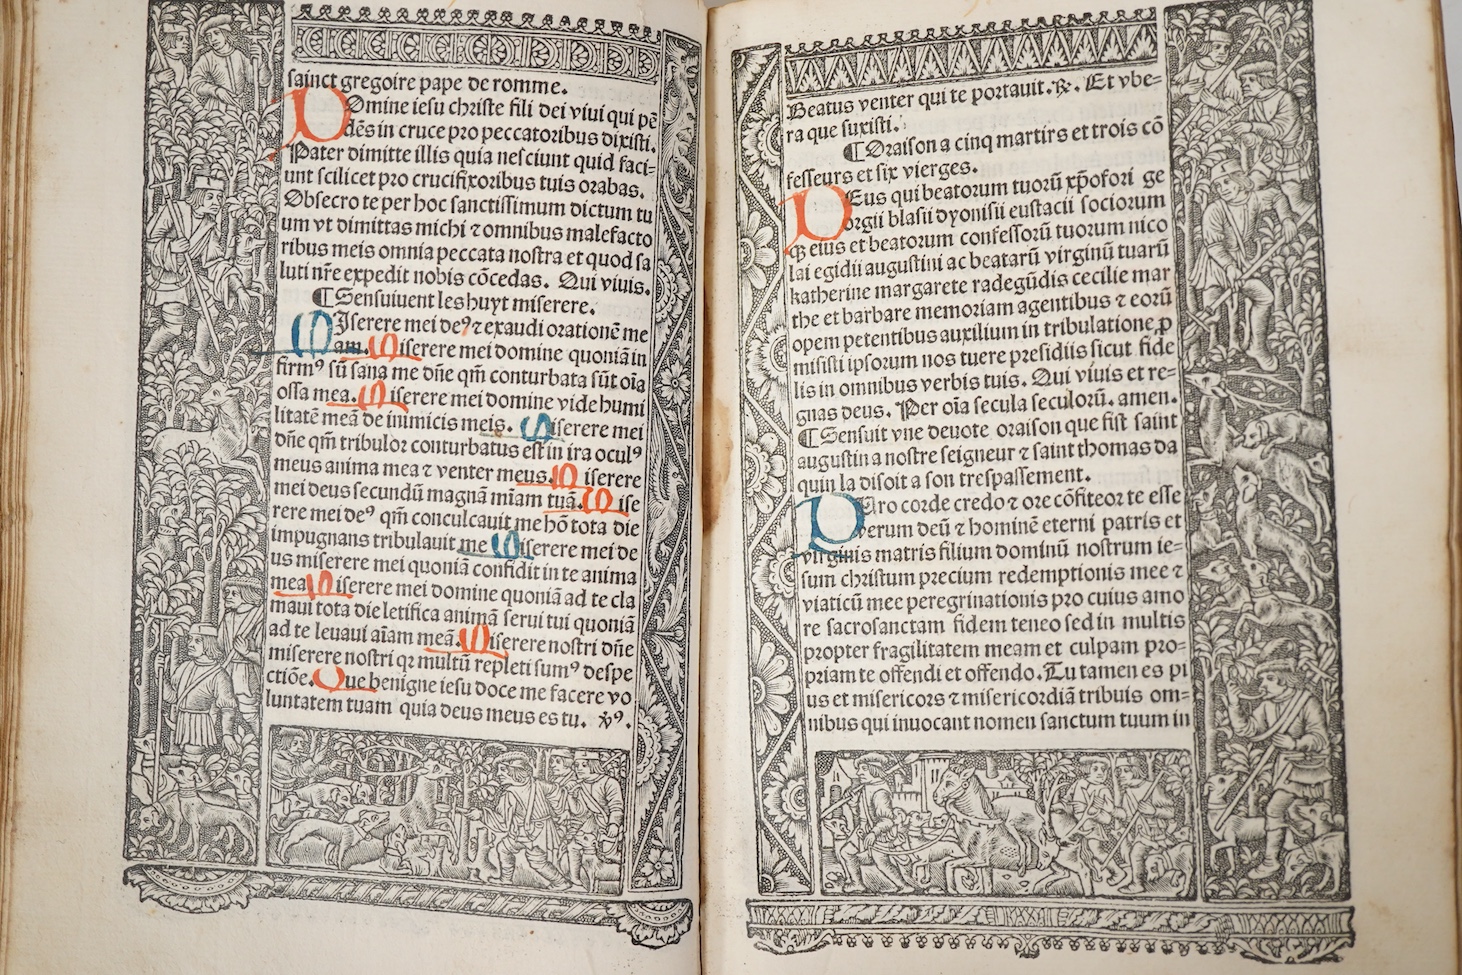 sainct gregoire pape de romme.
Domine iesu christe fili dei viui qui pē
dēs in cruce pro peccatoribus dixisti.
Pater dimitte illis quia nesciunt quid faci-
unt scilicet pro crucifixoribus tuis orabas.
Obsecro te per hoc sanctissimum dictum tu
um vt dimittas michi ⁊ omnibus malefacto
ribus meis omnia peccata nostra et quod sa
luti nr̄e expedit nobis cōcedas. Qui viuis.
¶ Sensuiuent les huyt miserere.
MIserere mei deꝰ ⁊ exaudi orationē me
am. Miserere mei domine quoniā in
firmꝰ sū sana me dn̄e qm̄ conturbata sūt oīa
ossa mea. Miserere mei domine vide humi
litatē meā de inimicis meis. Miserere mei
dn̄e qm̄ tribulor conturbatus est in ira oculꝰ
meus anima mea ⁊ venter meus. Miserere
mei deus secundū magnā mīam tuā. Mise
rere mei deꝰ qm̄ conculcauit me hō tota die
impugnans tribulauit me Miserere mei de
us miserere mei quoniā confidit in te anima
mea Miserere mei domine quoniā ad te cla
maui tota die letifica animā serui tui quoniā
ad te leuaui aīam meā. Miserere nostri dn̄e
miserere nostri qꝛ multū repleti sumꝰ despe
ctiōe. Que benigne iesu doce me facere vo
luntatem tuam quia deus meus es tu. v̄ꝰ.
Beatus venter qui te portauit. ꝶ. Et vbe-
ra que suxisti.
¶ Oraison a cinq martirs et trois cō
fesseurs et six vierges.
DEus qui beatorum tuorū xp̄ofori ge
orgii blasii dyonisii eustacii sociorum
qꝫ eius et beatorum confessorū tuorum nico
lai egidii augustini ac beatarū virginū tuarū
katherine margarete radegūdis cecilie mar
the et barbare memoriam agentibus ⁊ eorū
opem petentibus auxilium in tribulatione, p
misisti ipsorum nos tuere presidiis sicut fide
lis in omnibus verbis tuis. Qui viuis et re-
gnas deus. Per oīa secula seculorū. amen.
¶ Sensuit vne deuote oraison que fist saint
augustin a nostre seigneur ⁊ saint thomas da
quin la disoit a son trespassement.
Oro corde credo ⁊ ore cōfiteor te esse
verum deū ⁊ hominē eterni patris et
virginis matris filium dominū nostrum ie-
sum christum precium redemptionis mee ⁊
viaticū mee peregrinationis pro cuius amo
re sacrosanctam fidem teneo sed in multis
propter fragilitatem meam et culpam pro-
priam te offendi et offendo. Tu tamen es pi
us et misericors ⁊ misericordiā tribuis om-
nibus qui inuocant nomen sanctum tuum in